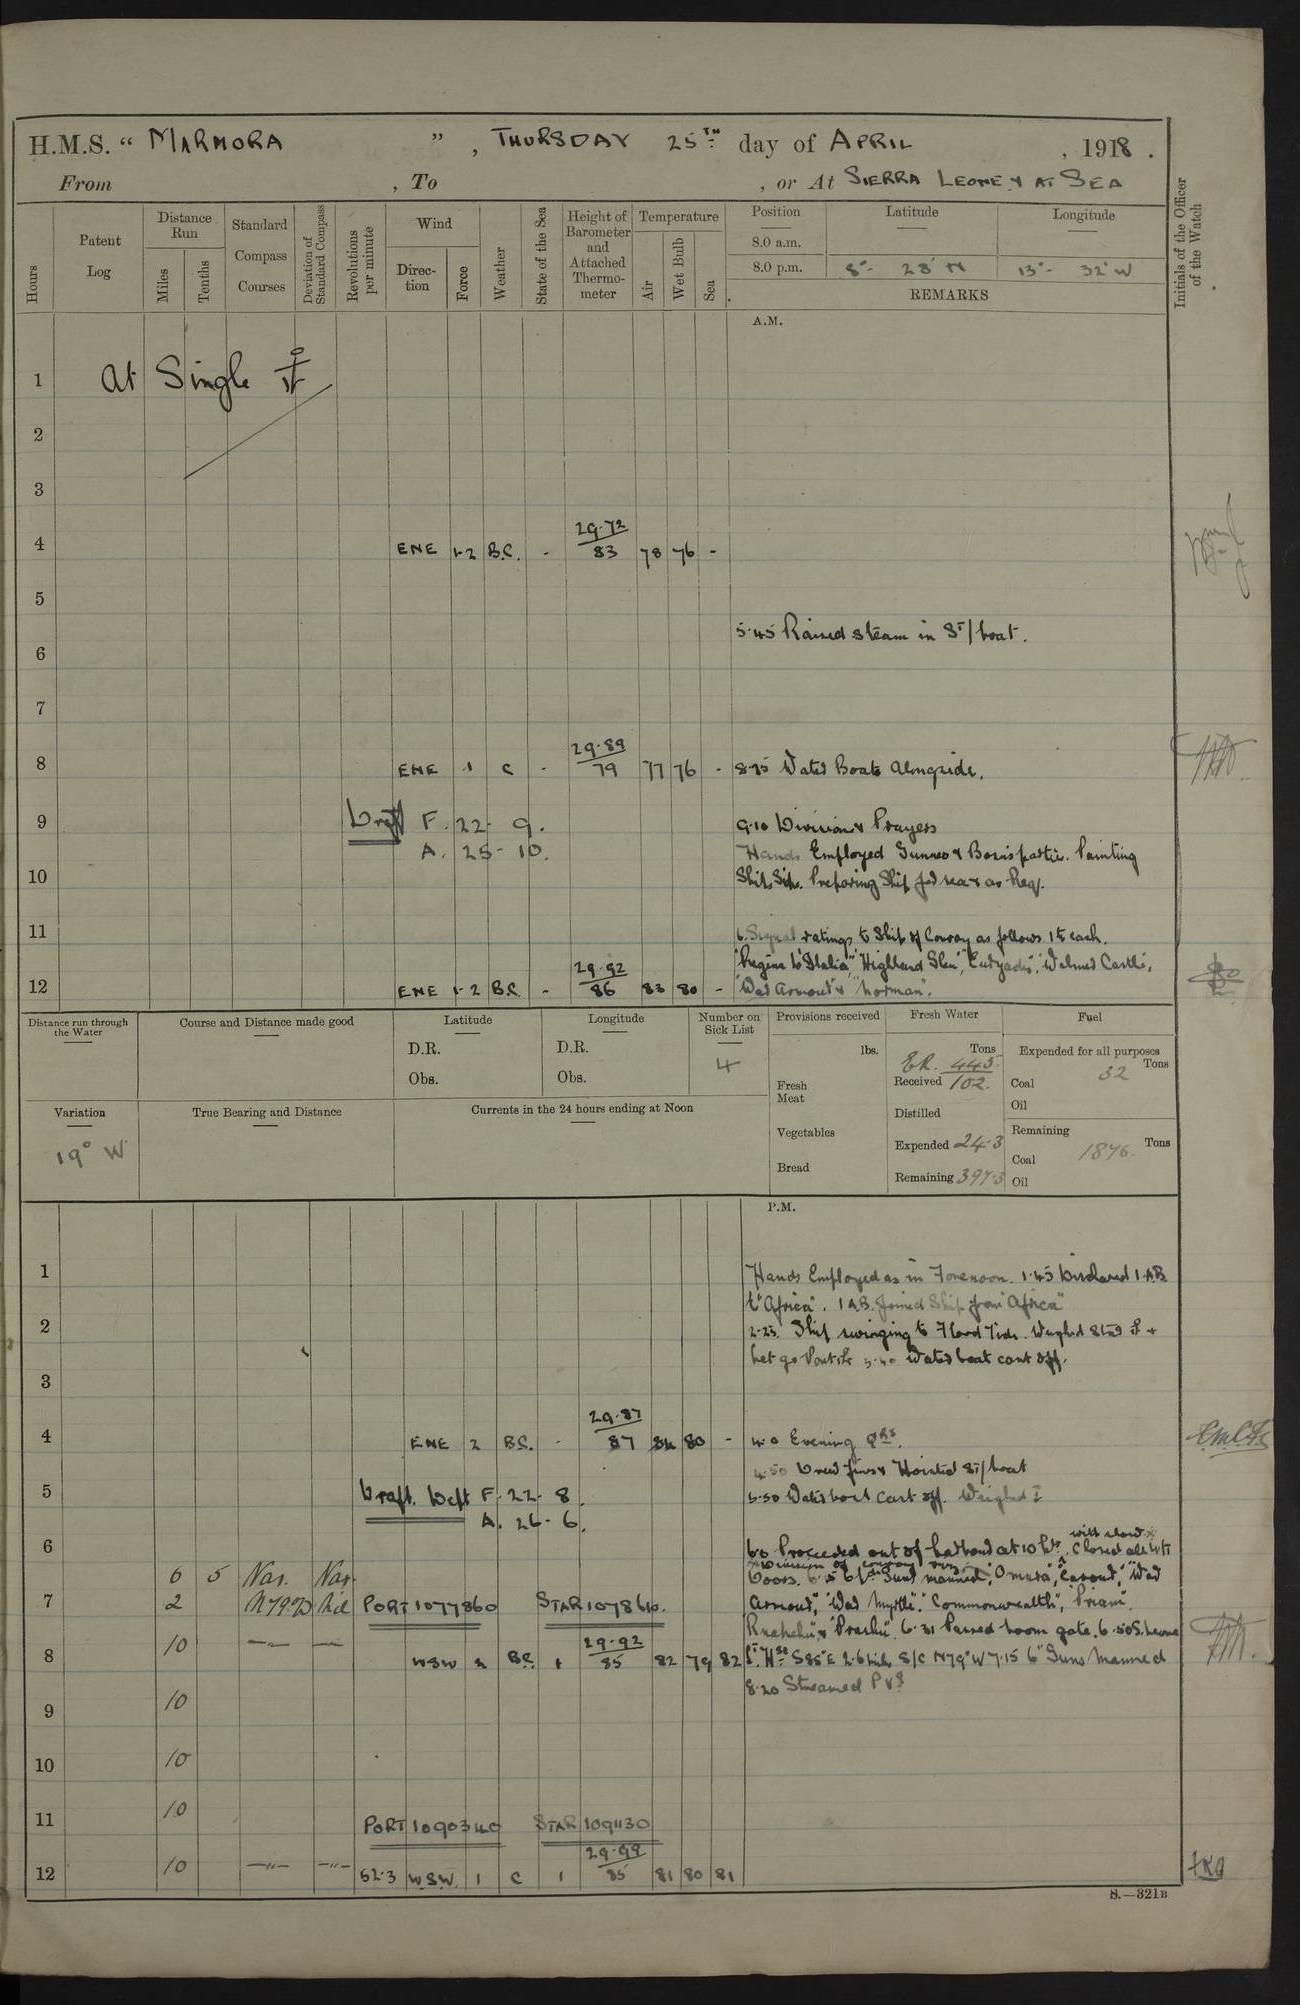 H.M.S. “ MARMORA ” , THURSDAY 25TH day of APRIL , 1918 .
From , To , or At SIERRA LEONE & AT SEA
Hours
Patent Log
Distance Run
Miles
Tenths
Standard Compass Courses
Deviation of Standard Compass
Revolutions per minute
Wind
Direc-tion
Force
Weather
State of the Sea
Height of Barometer and Attached Thermo-meter
Temperature
Air
Wet Bulb
Sea
Position Latitude Longitude
8.0 a.m.
8.0 p.m. 8°- 28' N 13°- 32' W
REMARKS
Initials of the Officer of the Watch
A.M.
1 At Single
2
3
4 ENE 1-2 B.C. - 29.72 83 78 76 -
5
5.45 Raised steam in St/boat.
6
7
8 ENE 1 C - 29.89 79 77 76 - 8.25 Water Boats Alongside.
9 Draft F. 22- 9. 9.10 Divisions & Prayers
A. 25- 10. Hands Employed Gunners & Bosn's parties. Painting
10 Ships Side. Preparing Ship for sea & as Req.
11 6 Signal ratings to Ships of Convoy as follows 1 to each.
"Regina D'Italia", "Highland Glen", "Euryades", "Walmer Castle",
12 ENE 1-2 B.C. - 29.92 86 83 80 - "War Armour" & "Norman".
Distance run through the Water
Course and Distance made good
Latitude
D.R.
Obs.
Longitude
D.R.
Obs.
Number on Sick List
4
Provisions received
lbs.
Fresh Meat
Vegetables
Bread
Fresh Water
Tons
445
Received 102.
Distilled
Expended 24.3
Remaining 397.3
Fuel
Expended for all purposes
Tons
Coal 32
Oil
Remaining
Tons
Coal 1876.
Oil
Variation
19° W
True Bearing and Distance
Currents in the 24 hours ending at Noon
P.M.
1 Hands Employed as in Forenoon. 1.45 Discharged 1 AB
to "Africa". 1 A.B. Joined Ship from "Africa"
2 2.25. Ship swinging to Flood Tide. Weighed Stbd &
Let go Port Water boat cast off.
3
4 ENE 2 B.C. - 29.87 87 84 80 - 4.0 Evening Qrs.
4.50 Drew fires & Hoisted St/boat
5 Draft. Left F. 22- 8. 5.50 Water boat Cast off. Weighed
A. 26- 6.
6 6.0 Proceeded out of harbour at 10 kts. Closed all WT
6 5 Var. Var. Doors. 6" Guns manned. "Omrah", "War
7 2 N79W Nil PORT 1077860 STAR 1078610. Armour", "War Myrtle". "Commonwealth", "Priam".
10 "Prahsu". 6.31 Passed boom gate. 6.50 S. Leone
8 WSW 2 B.C. 1 29.92 85 82 79 82 Lt. Hse S85°E 2.6 miles S/C N79°W 7.15 6" Guns Manned
8.20 Streamed P & S
9 10
10 10
11 10 PORT 1090340 STAR 1091130
12 10 —"— —"— 52.3 WSW 1 C 1 29.99 85 81 80 81
S.—321B